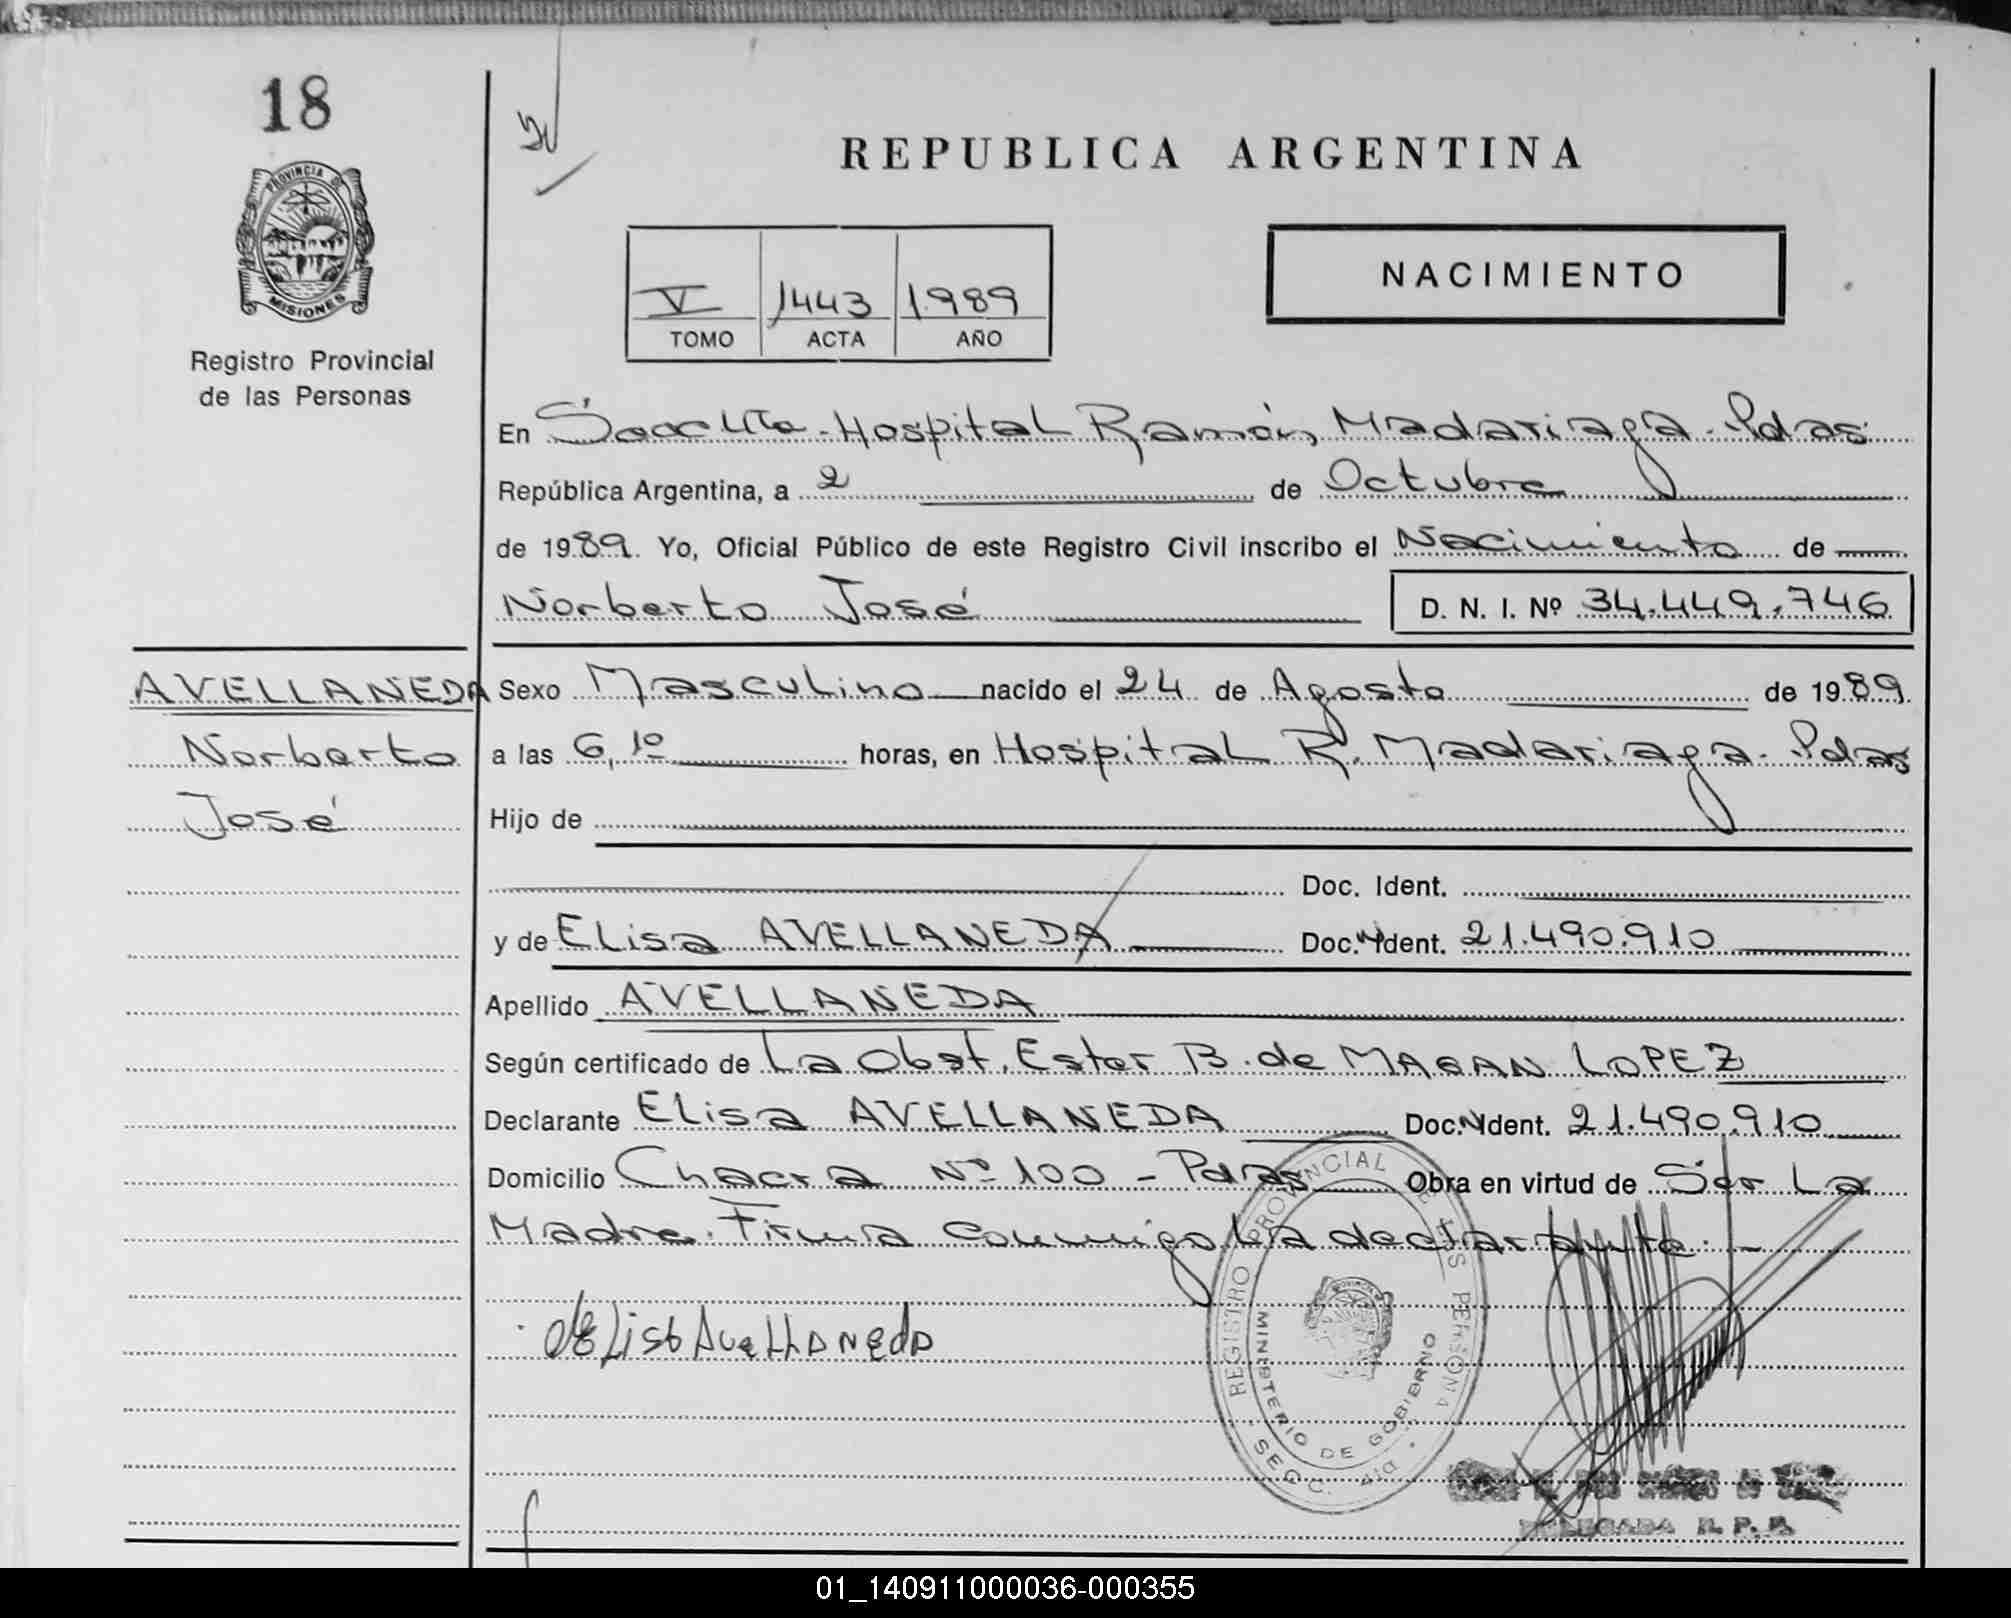 18
PROVINCIA DE
MISIONES
Registro Provincial
de las Personas
REPUBLICA ARGENTINA
V 1443 1989
TOMO ACTA AÑO
NACIMIENTO
En Secc 4ta - Hospital Ramón Madariaga - Pdas
República Argentina, a 2 de Octubre
de 1989. Yo, Oficial Público de este Registro Civil inscribo el Nacimiento de
Norberto José D. N. I. Nº 34.449.746
AVELLANEDA
Norberto
José
Sexo Masculino nacido el 24 de Agosto de 1989.
a las 6,10 horas, en Hospital R. Madariaga - Pdas
Hijo de
Doc. Ident.
y de Elisa AVELLANEDA Doc. Ident. 21.490.910
Apellido AVELLANEDA
Según certificado de La Obst. Ester B. de LOPEZ
Declarante Elisa AVELLANEDA Doc. Ident. 21.490.910
Domicilio Chacra Nº 100 - Pdas Obra en virtud de Ser La
Madre. Firma conmigo La declarante. -
Elisa Avellaneda
REGISTRO PROVINCIAL DE LAS PERSONAS
MINISTERIO DE GOBIERNO
SECC. 4ta
DELEGADA R. P. P.
01_140911000036-000355